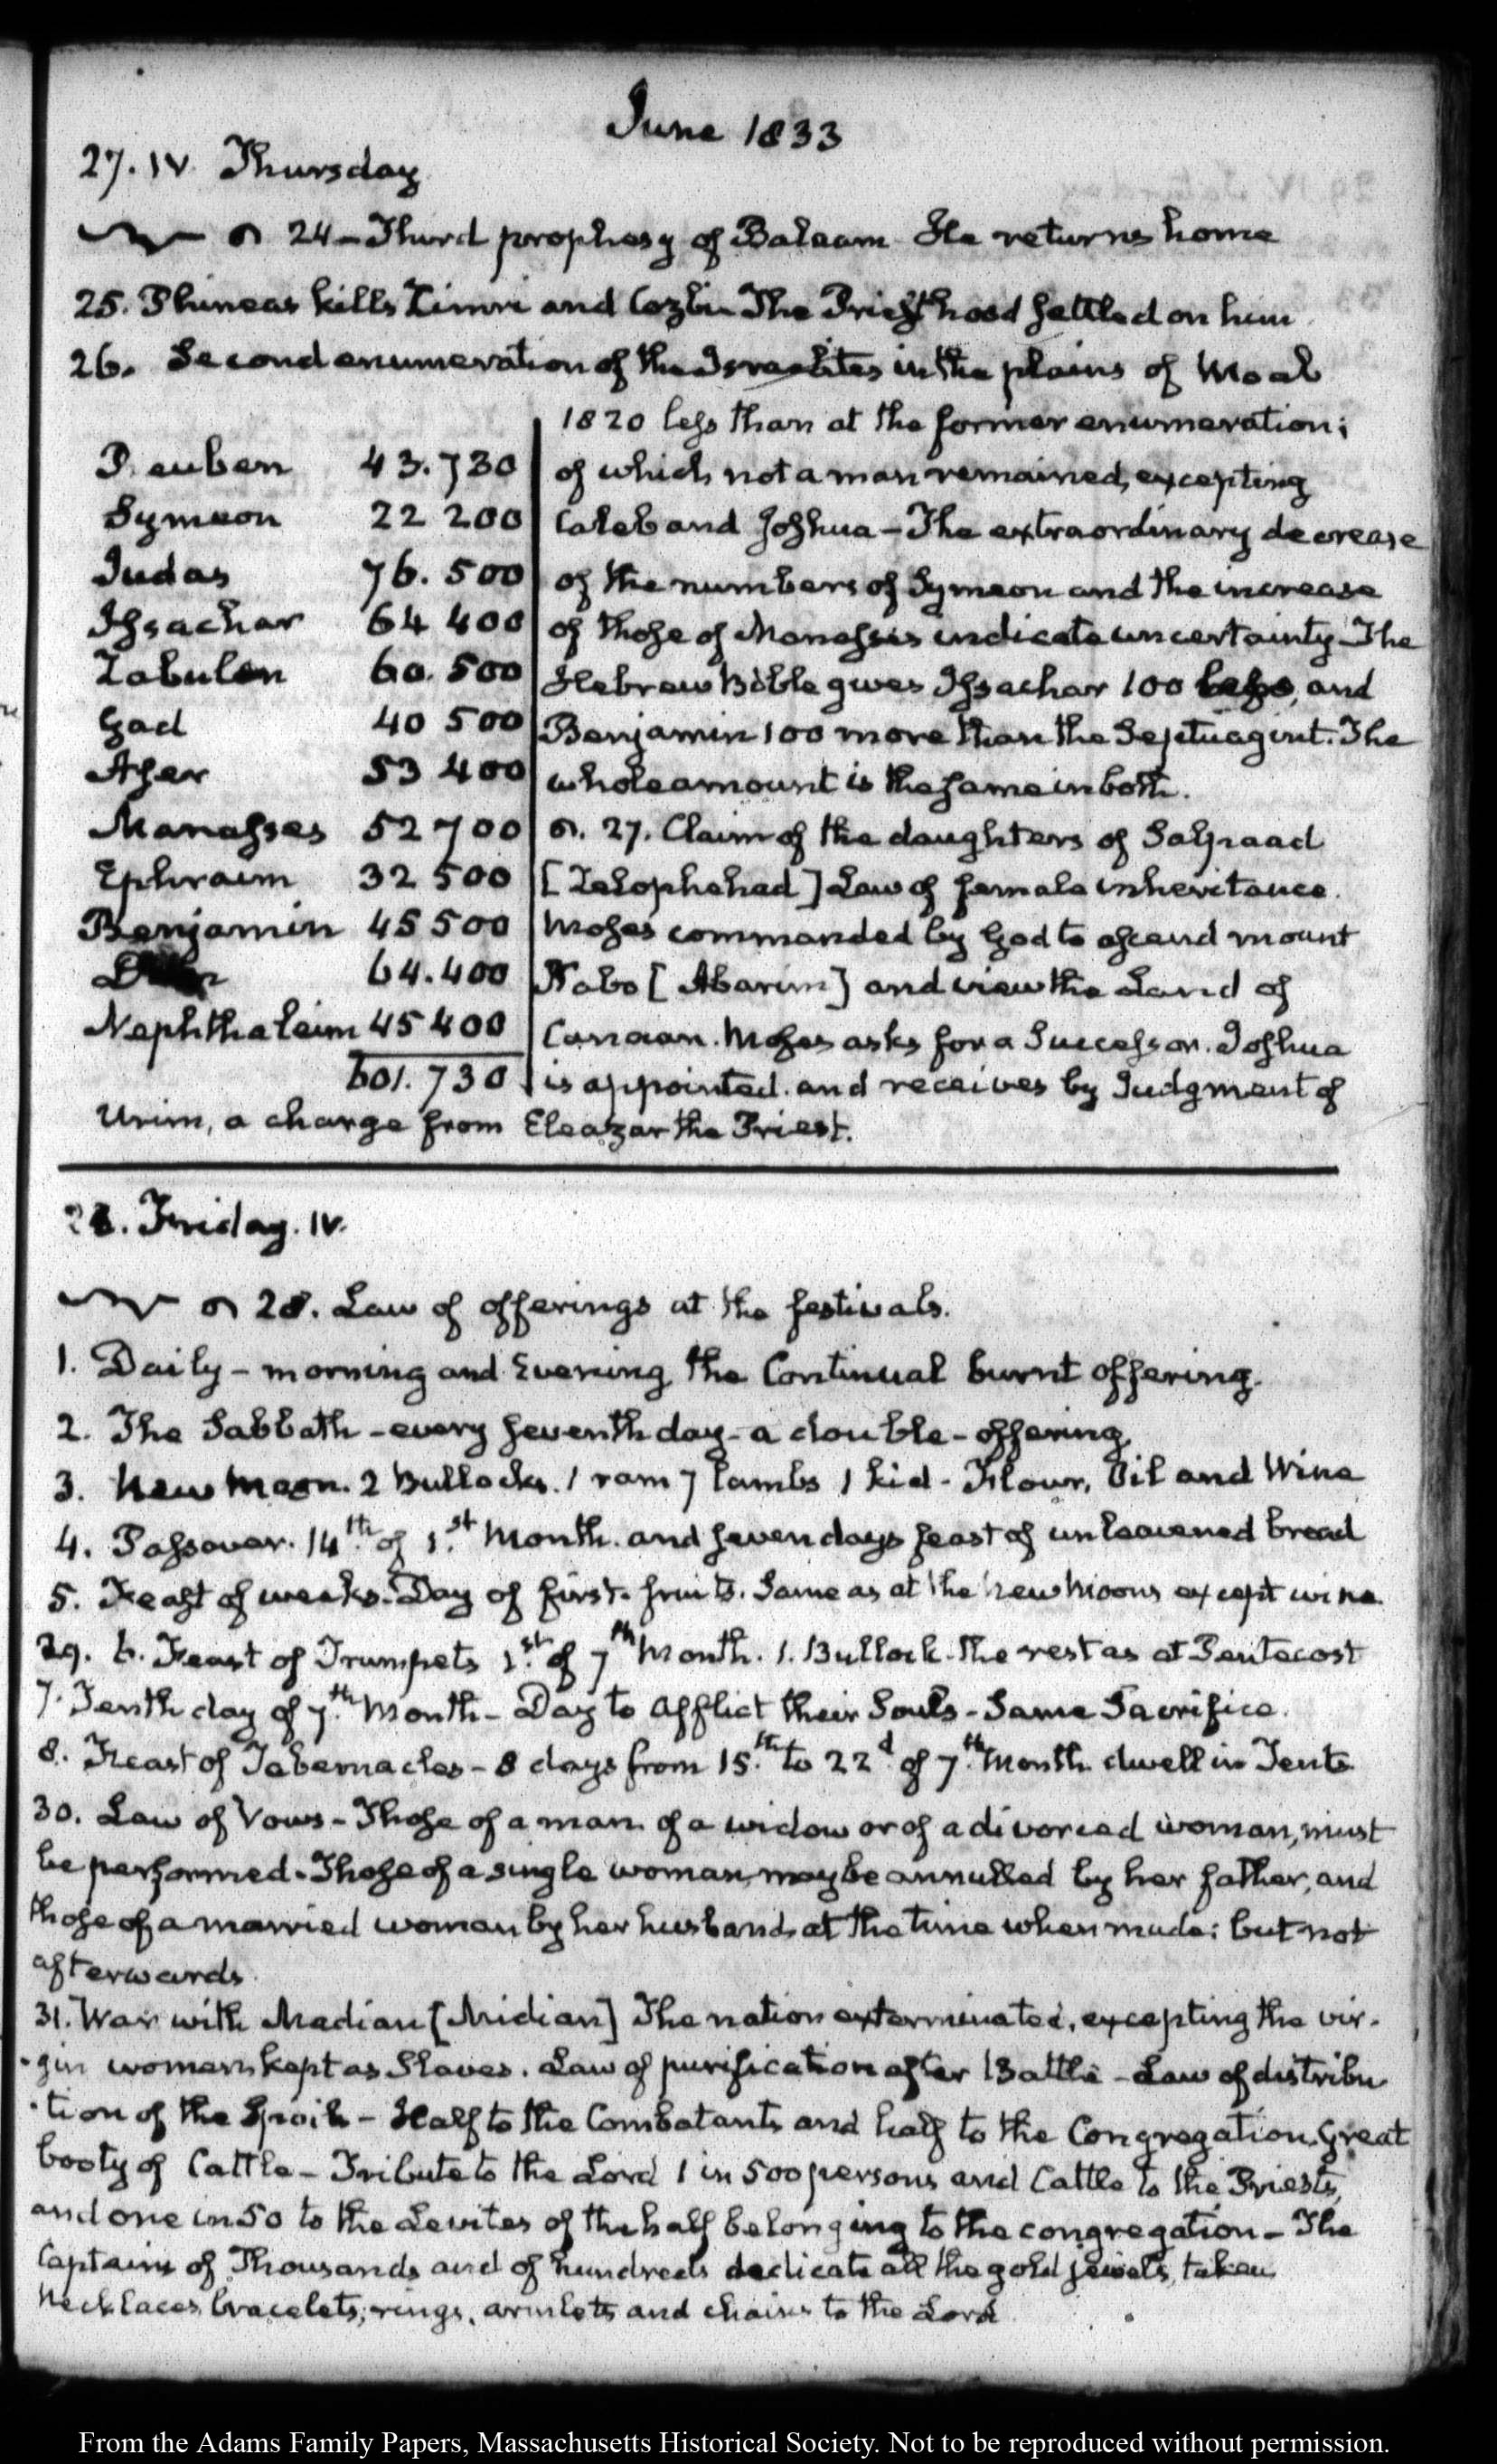 June 1833
27. IV. Thursday
24 - Third prophesy of Balaam He returns home
25. Phineas kills Zimri and Cozbi The Priesthood settled on him
26. Second enumeration of the Israelites in the plains of Moab
Reuben 43.730
Symeon 22 200
Judas 76.500
Issachar 64 400
Zabulon 60.500
Gad 40 500
Aser 53 400
Manasses 52 700
Ephraim 32 500
Benjamin 45 500
Dan 64.400
Nephthaleim 45 400
601.730
1820 less than at the former enumeration;
of which not a man remained, excepting
Caleb and Joshua - The extraordinary decrease
of the numbers of Symeon and the increase
of those of Manasses indicate uncertainty - The
Hebrew Bible gives Issachar 100 less, and
Benjamin 100 more than the Septuagint. The
whole amount is the same in both.
27. Claim of the daughters of Salpaad
[Zelophehad] Law of female inheritance.
Moses commanded by God to ascend mount
Nabo [Abarim] and view the Land of
Canaan. Moses asks for a Successor. Joshua
is appointed. and receives by Judgment of
Urim, a charge from Eleazar the Priest.
28. Friday. IV.
28. Law of offerings at the festivals.
1. Daily - morning and Evening the Continual burnt offering.
2. The Sabbath - every seventh day - a double - offering.
3. New Moon. 2 Bullocks. 1 ram 7 lambs 1 kid - Flour, Oil and Wine
4. Passover. 14th. of 1st. Month. and seven days feast of unleavened bread
5. Feast of weeks. Day of first-fruits. Same as at the New Moons except wine.
29. 6. Feast of Trumpets 1st. of 7th Month. 1. Bullock. the rest as at Pentecost
7. Tenth day of 7th. Month - Day to afflict their Souls - Same Sacrifice.
8. Feast of Tabernacles - 8 days from 15th. to 22d. of 7th. Month dwell in Tents
30. Law of Vows - Those of a man. of a widow or of a divorced woman, must
be performed. Those of a single woman, may be annulled by her father, and
those of a married woman by her husband, at the time when made: but not
afterwards.
31. War with Madian [Midian] The nation exterminated, excepting the vir-
-gin women, kept as Slaves. Law of purification after Battle - Law of distribu
-tion of the Spoils - Half to the Combatants and half to the Congregation. Great
booty of Cattle - Tribute to the Lord 1 in 500 persons and Cattle to the Priests,
and one in 50 to the Levites of the half belonging to the congregation - The
Captains of Thousands and of hundreds dedicate all the gold jewels, taken
Necklaces bracelets, rings, armlets and chains to the Lord
From the Adams Family Papers, Massachusetts Historical Society. Not to be reproduced without permission.